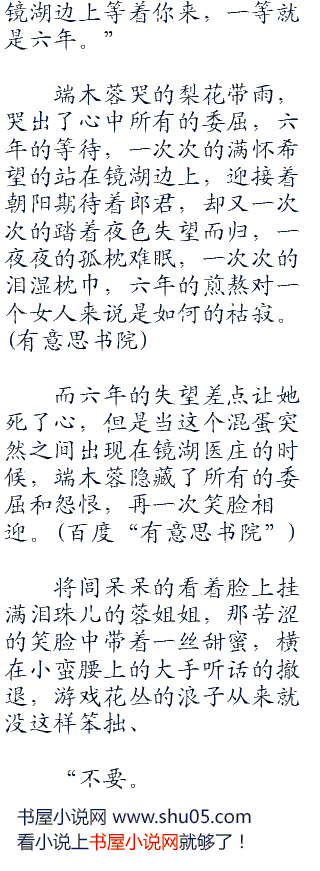 镜湖边上等着你来，一等就
是六年。”
端木蓉哭的梨花带雨，
哭出了心中所有的委屈，六
年的等待，一次次的满怀希
望的站在镜湖边上，迎接着
朝阳期待着郎君，却又一次
次的踏着夜色失望而归，一
夜夜的孤枕难眠，一次次的
泪湿枕巾，六年的煎熬对一
个女人来说是如何的枯寂。
(有意思书院)
而六年的失望差点让她
死了心，但是当这个混蛋突
然之间出现在镜湖医庄的时
候，端木蓉隐藏了所有的委
屈和怨恨，再一次笑脸相
迎。(百度“有意思书院”)
将闾呆呆的看着脸上挂
满泪珠儿的蓉姐姐，那苦涩
的笑脸中带着一丝甜蜜，横
在小蛮腰上的大手听话的撤
退，游戏花丛的浪子从来就
没这样笨拙、
“不要。
书屋小说网 www.shu05.com
看小说上书屋小说网就够了！